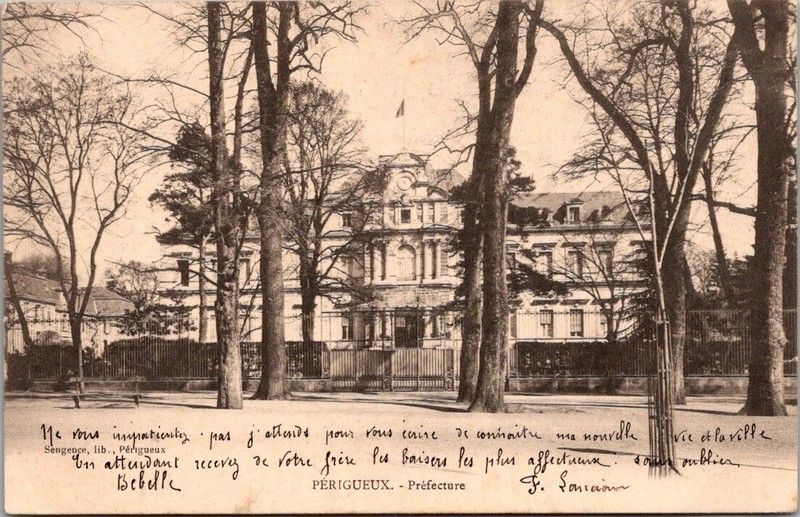 Ne vous impatientez pas j'attends pour vous écrire de connaitre ma nouvelle vie et la ville
Sengence, lib., Périgueux
En attendant recevez de votre frère les baisers les plus affectueux. sans oublier
Bebelle
PÉRIGUEUX. - Préfecture
F.